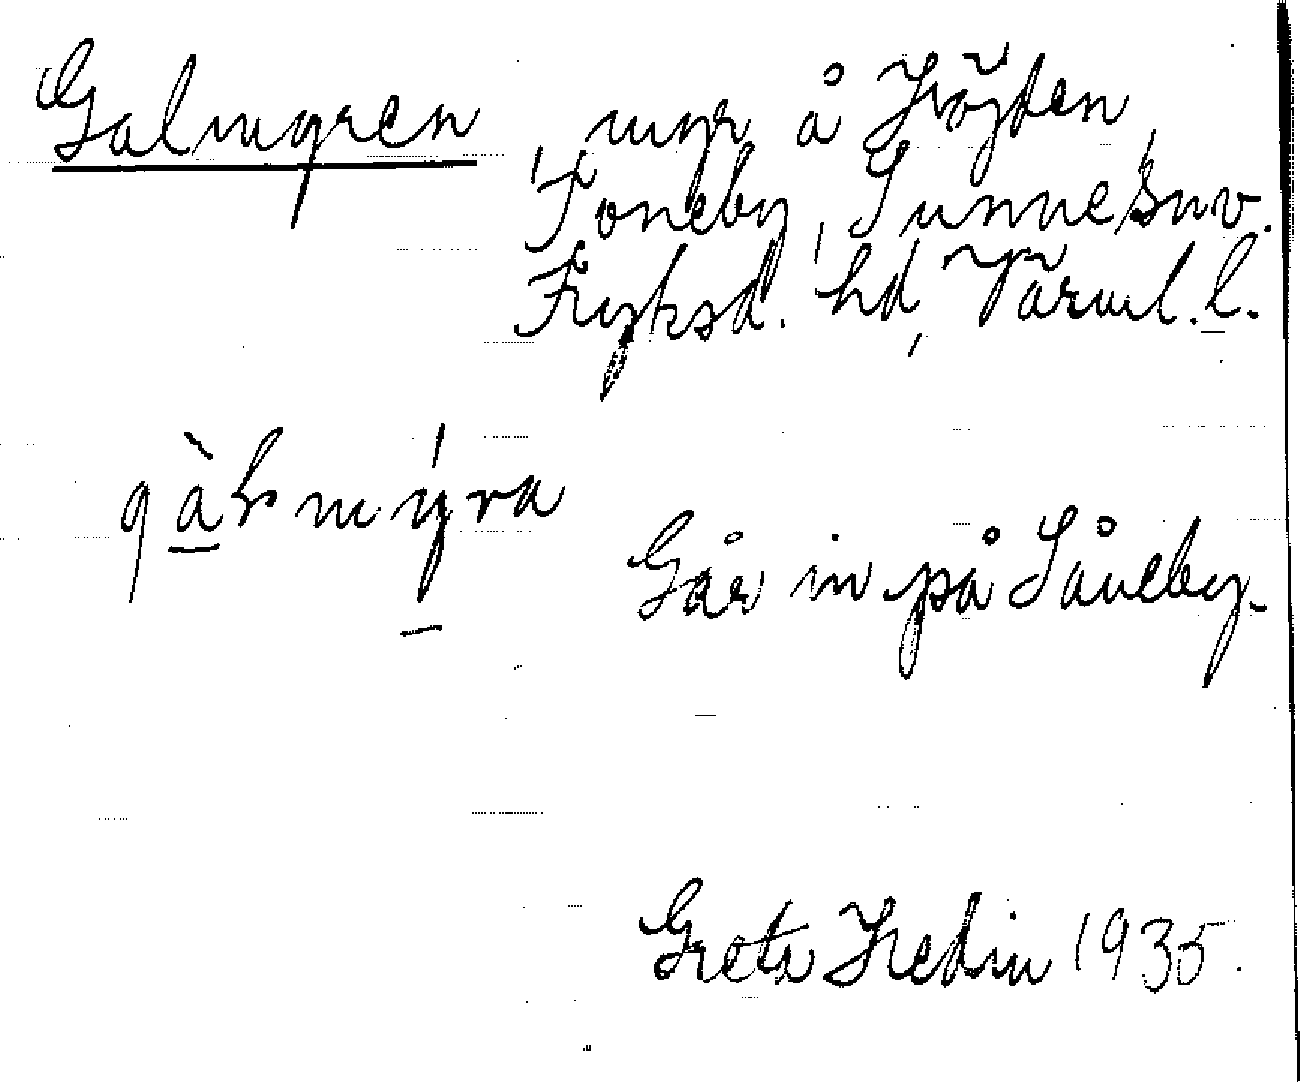 Galmyren, myr å Höjden,
Toneby, Sunne snv.
Fryksd. hd, Värml. l.
Går in på Såneby.
Greta Hedin 1935.